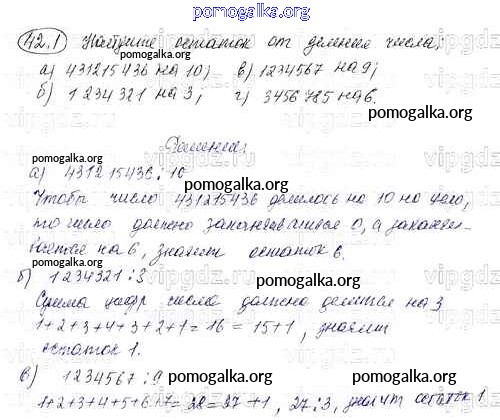 pomogalka.org
42.1 Найдите остаток от деления числа:
а) 431215436 на 10; в) 1234567 на 9;
б) 1234321 на 3; г) 3456785 на 6.
pomogalka.org
Решение:
pomogalka.org
а) 431215436 : 10
pomogalka.org
Чтобы число 431215436 делилось на 10 на цело,
то число должно заканчиваться 0, а заканчи-
вается на 6, значит остаток 6.
б) 1234321 : 3
pomogalka.org
Сумма цифр числа должна делиться на 3
1+2+3+4+3+2+1=16=15+1, значит
остаток 1.
pomogalka.org
в) 1234567 : 9
pomogalka.org
1+2+3+4+5+6+7=28=27+1, 27:3, значит остаток 1